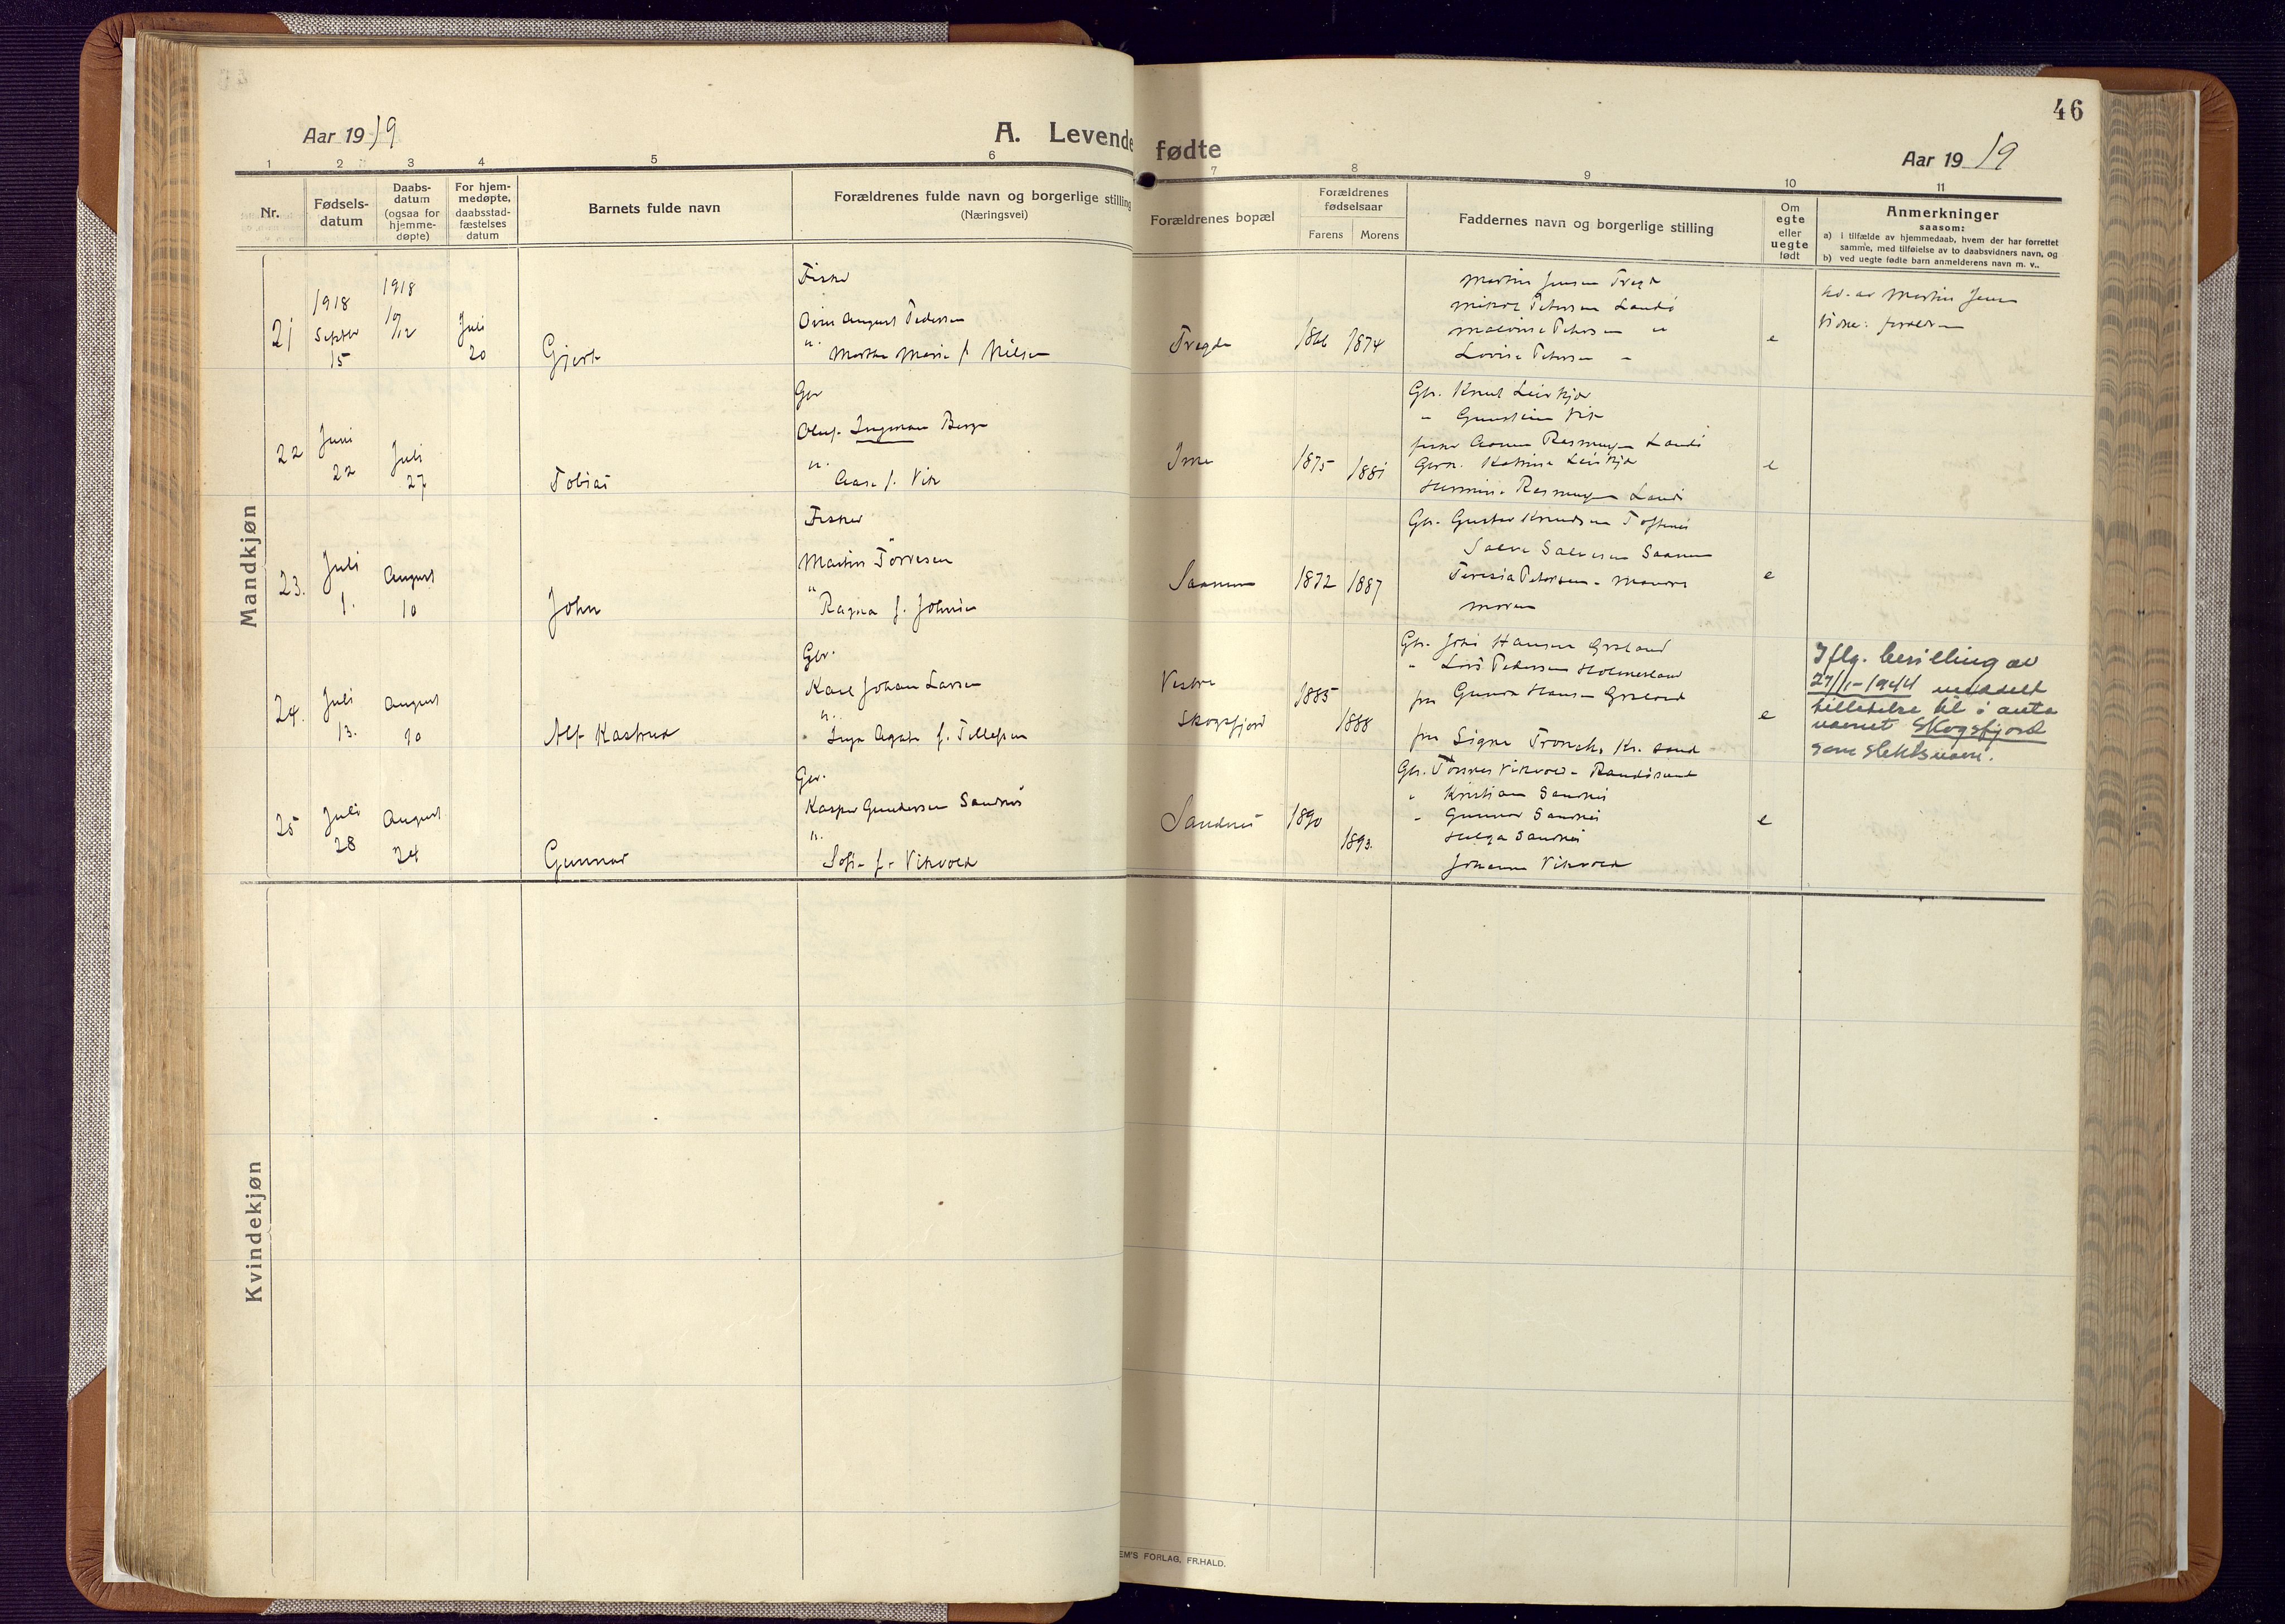 46
Aar 1919
A. Levende fødte
Aar 1919
1 2 3 4 5 6 7 8 9 10 11
Nr.
Fødsels-
datum
Daabs-
datum
(ogsaa for
hjemme-
døpte)
For hjem-
medøpte,
daabsstad-
fæstelses
datum
Barnets fulde navn
Forældrenes fulde navn og borgerlige stilling
(Næringsvei)
Forældrenes bopæl
Forældrenes
fødselsaar
Farens Morens
Faddernes navn og borgerlige stilling
Om
egte
eller
uegte
født
Anmerkninger
saasom:
a) i tilfælde av hjemmedaab, hvem der har forrettet
samme, med tilføielse av to daabsvidners navn, og
b) ved uegte fødte barn anmelderens navn m. v..
Mandkjøn
21
1918
Septbr
15
1918
19/12
Juli
20
Gjert
Fisker
August Pedersen
"
Marthe Marie f. Nilsen
Tregde
1866 1874
Martin Jensen Tregde
Petersen Landö
Petersen "
Lovise Petersen "
e
av Martin Jensen
22
Juni
22
Juli
27
Tobias
Gbr
Oluf Ingman Berge
"
Aase f. Vik
Ime
1875 1881
Gbr. Knut Leirkjær
" Gunstein Vik
Rasmussen Landö
Katrine Leirkjær
Rasmussen Landö
e
23.
Juli
1.
August
10
John
Fisker
Martin Törresen
"
Ragna f. Johnsen
Saanum
1872 1887
Gbr. Gustav Knudsen Toftenes
Salve Salvesen Saanum
Teresia Petersen
moren
e
24.
Juli
13.
August
10
Alf Kastrud
Gbr.
Karl Johan Larsen
"
Inga Agate f. Tellefsen
Vestre
Skogsfjord
1885
1888
Gbr. Hansen
" Lars Pedersen Holmesland
fru Gunda Hansen
fru Signe Kr. sand
e
Iflg. bevilling av
27/1-1944 meddelt
tillatelse til å anta
navnet Skogsfjord
som slektsnavn.
25
Juli
28
August
24
Gunnar
Gbr.
Kasper Gundersen Sandnes
"
Sofie f. Vikvold
Sandnes
1890
1893.
Gbr. Tönnes Vikvold Randösund
" Kristian Sandnes
" Gunnar Sandnes
Helga Sandnes
Johanne Vikvold
e
Kvindekjøn
EM'S FORLAG, FR.HALD.